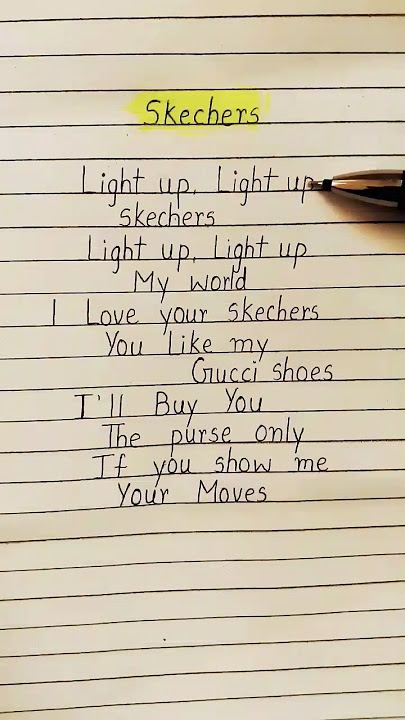 Skechers
Light up, Light up
Skechers
Light up, Light up
My world
I Love your skechers
You Like my
Gucci shoes
I'll Buy You
The purse only
If you show me
Your Moves